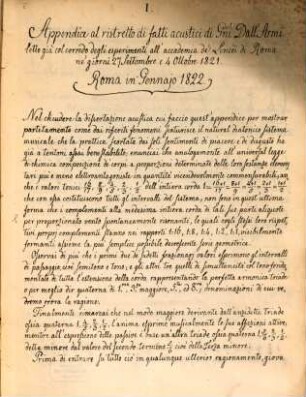 I.
Appendice al ristretto di fatti acustici di Gni Dall'Armi
letto col corredo degli esperimenti all'accademia de' Lincei di Roma
ne' giorni 27 Settembre e 4 Ottobre 1821.
Roma in Gennajo 1822
Nel chiudere la dissertazione acustica cui faccio quest'appendice per mostrar
partitamente come dai riferiti fenomeni scaturisce il natural diatonico sistema
musicale che la prattica scortata dai soli sentimenti di piacere e di disgusto ha
già a tentoni, assai ben stabilito; enunciai che analogamente all'universal legge
di chimica composizione di corpi a proporzioni determinate delle loro sostanze elemen-
tari più o meno elettronegativi in quantità vicendevolmente commensurabili,
che i valori tonici dell'intiera corda
che con essa costituiscono tutti gl'intervalli del sistema, non sono in questi altima
forma che i complementi alla medesima intiera corda di tali sue parti aliquote
per proporzionale vento pontaneamente risonanti, le quali cogli stessi loro rispet-
tivi proprj complementi stanno nei rapporti 1:16, 1:8, 1:4, 1:2, 1:1, visibilmente
formanti asisma la più semplice possibile decrescente serie geometrica.
Osservai di più che i primi due di siffatti frazionarj valori esprimono gl'intervalli
di passaggio ossia semitono e tono; e gli altri tre quelli di simultaneità col tono fonda-
mentale di tutta l'estensione della corda rappresentante la perfetta armonica triade
o per meglio dir quaterna di 1.ma 3.a maggiore, 5.a, ed 8.a; denominazioni di cui ve-
dremo prova la ragione.
Finalmente rimarcai che nel modo maggiore derivante dall'anzidetta triade
ossia quaterna l'anima esprime musicalmente le sue affezioni attive,
mentre all'espressione delle passive è base un'altra triade ossia quaterna
della minore dal valore del secondo termine cioè della terza minore.
Prima di entrare su tutto ciò in qualunque ulterior ragionamento, giova